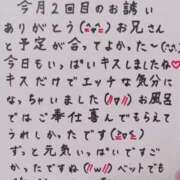 今月2回目のお誘い
ありがとう お兄さん
と予定が合ってよかった~
今日もいっぱいキスしましたね
キスだけでエッチな気分に
なっちゃいました お風呂
ではご奉仕喜んでもらえて
うれしかったです
ずっと元気いっぱいですご
かったですね ベットでも